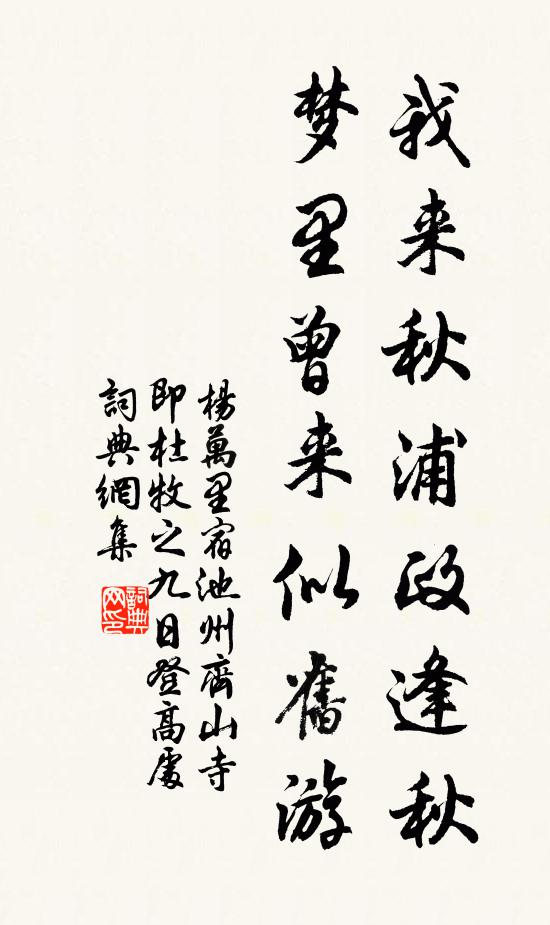 我来秋浦政逢秋
梦里曾来似舊游
楊萬里宿池州齊山寺
即杜牧之九日登高處
詞典網集
詞典
网印